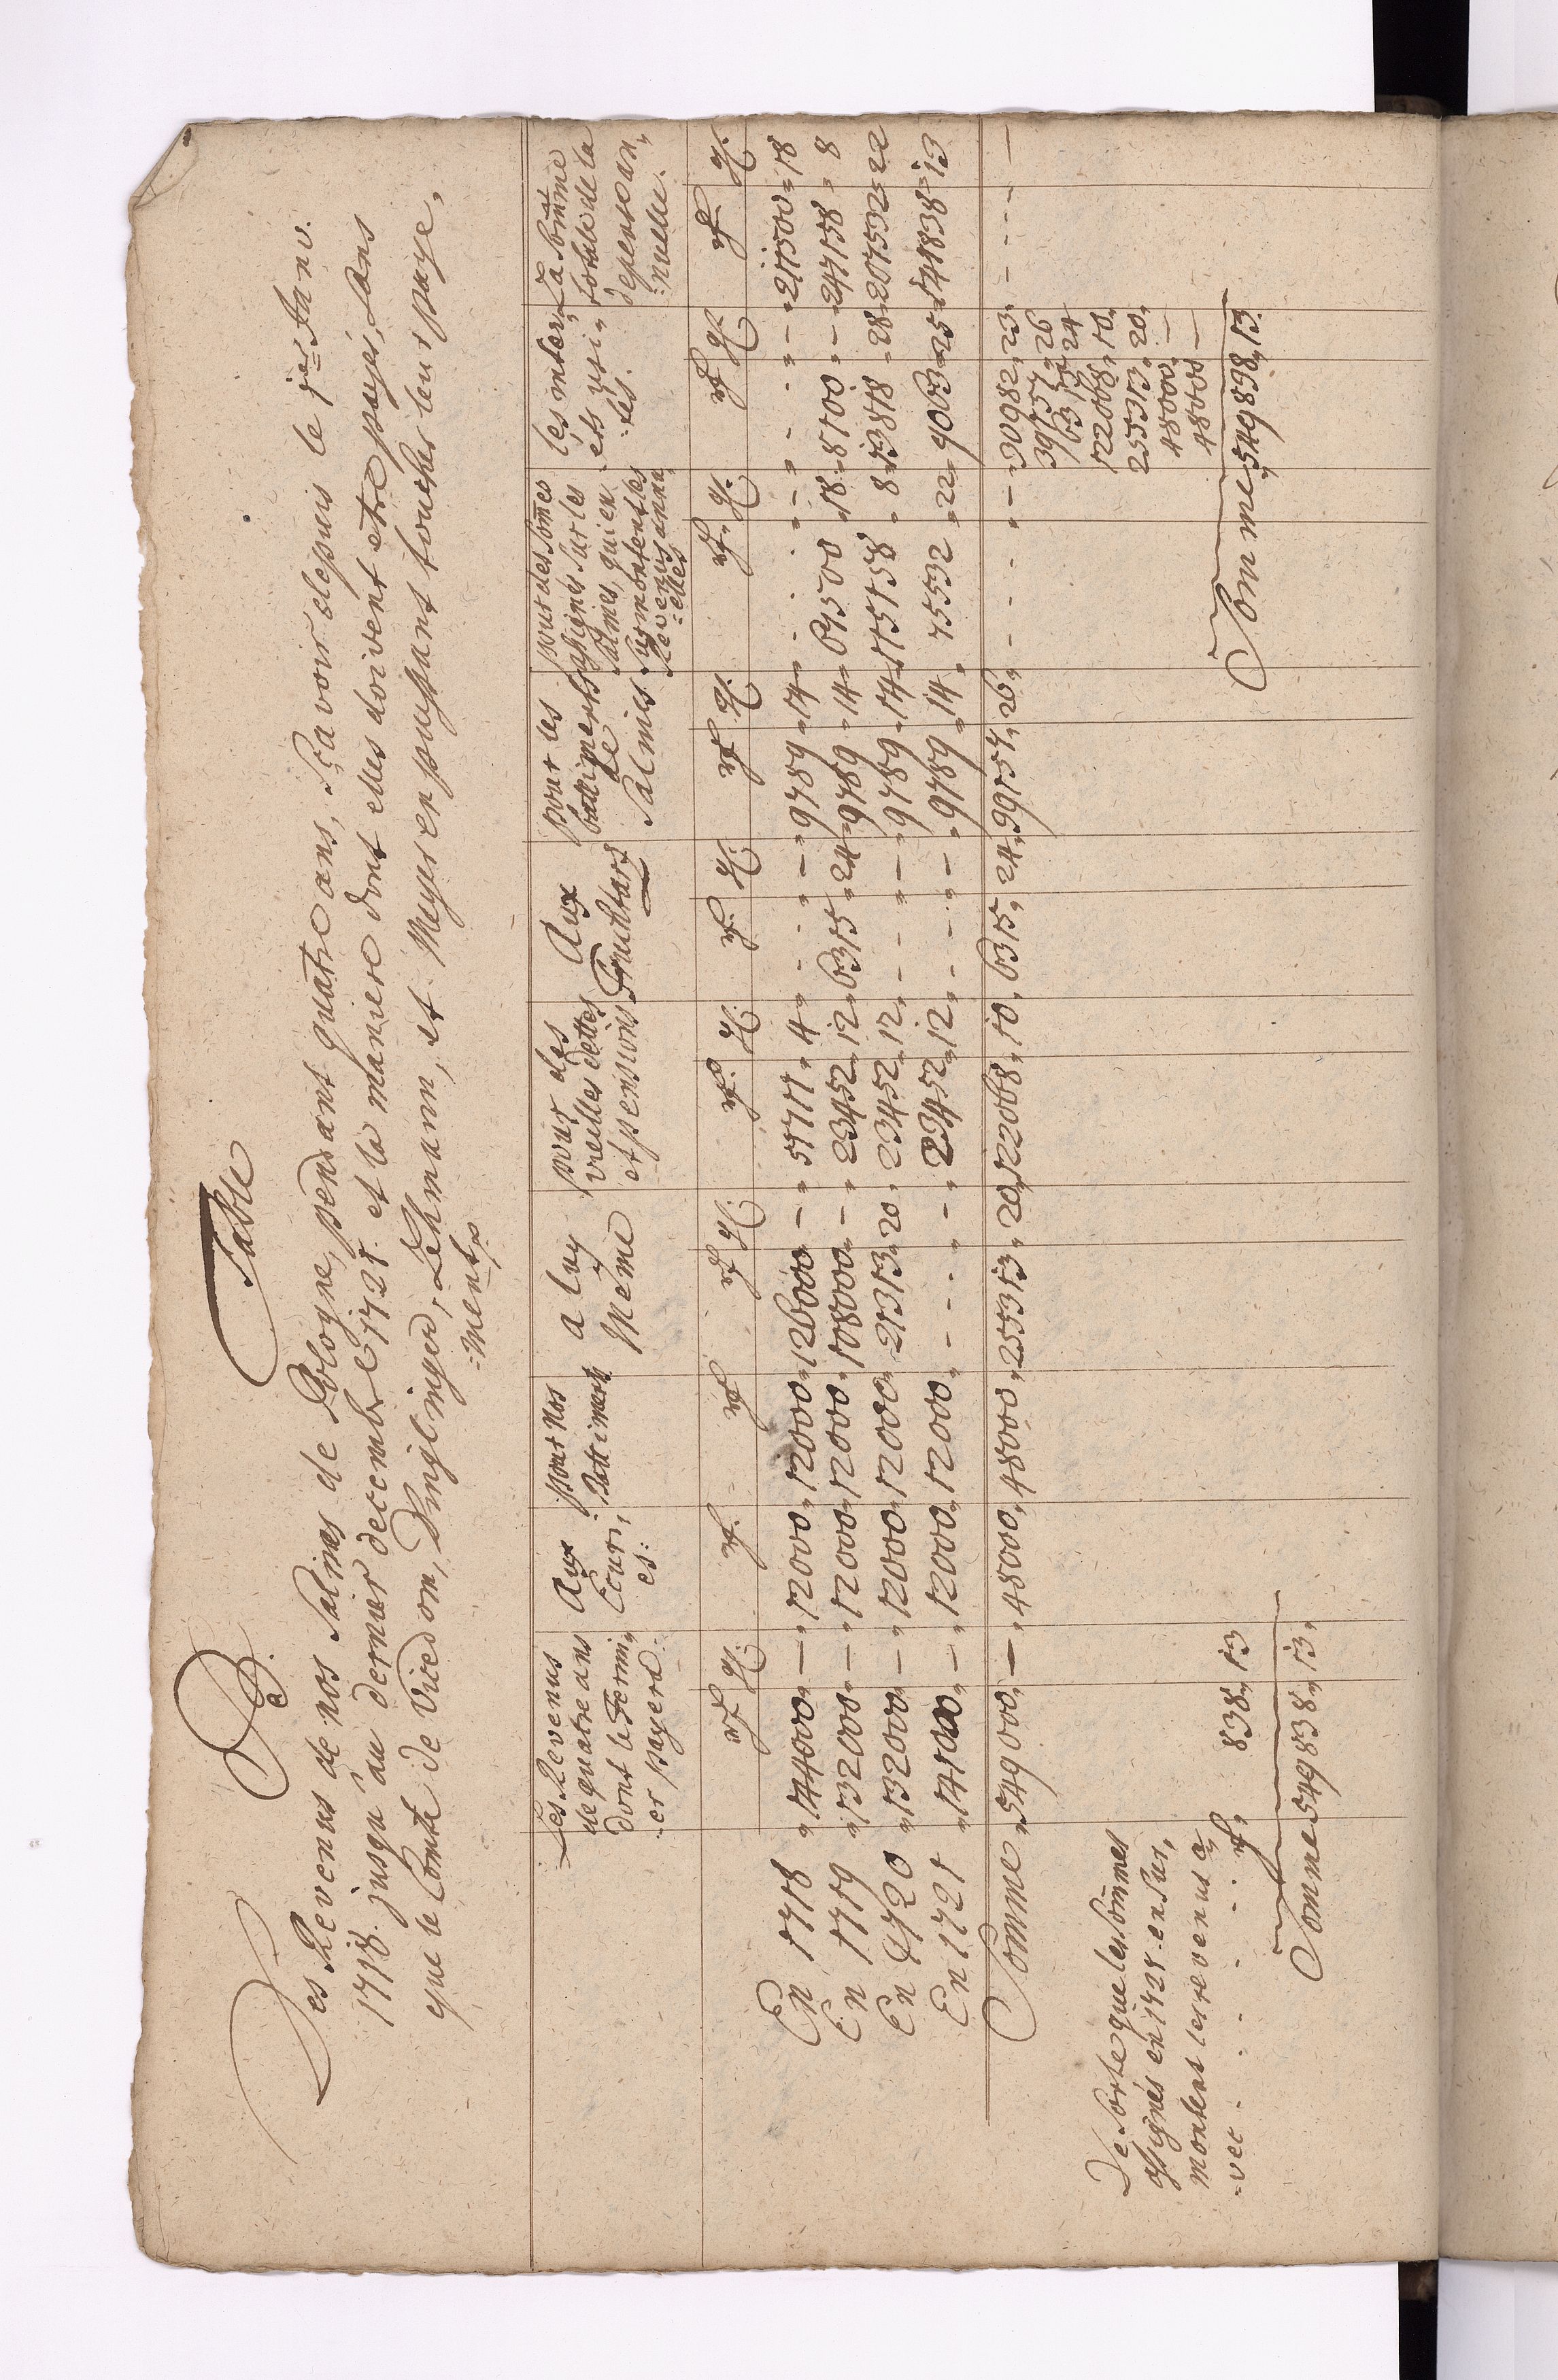 B.
Table
Des Revenus de nos Salines de Pologne, pendant quatre ans, Scavoir depuis le jer Janv.
1718. jusqu'au dernier decembre 1721. et la maniere dont elles doivent etre payés, sans
que le Comte de Vicedom, Dinglinger, Lehmann, et Meyer puissant toucher leur paye,
=ment.
Les Revenus de quatre ans dont le Fermi, =er payera: | Aux Ecuri, es: | pour Nos Battiments | a luy Meme | pour des vieilles dettes et pensions | Aux | pour les battiments de Salines | pour des Som̃es assignés sur les Salines, qui en surmontent les Revenus annu =elles | les inter, =ets usi, =tés. | La Som̃e totale de la depense an, =nuelle.
rf. gl. | rf. | rf. | rf. gl. | rf. gl. | rf. gl. | rf. gl. | rf. gl. | rf. gl. | rf. gl.
En 1718 144000 — 12000 12000 126000 — 51711 4 - - — 9789 14 - - — - - — 211500 18
En 1719 132000 — 12000 12000 108000 — 23452 12 6315 24 9789 14 67500 18 8100 — 247158 8
En 1720 132000 — 12000 12000 21313 20 23452 12 - - — 9789 14 115158 8 13818 28 207532 22
En 1721 141000 — 12000 12000 - - - — 23452 12 - - — 9789 14 75532 22 9063 25 141838 13
Somme 549000 — 48000 48000 255313 20 122068 10 6315 24 39157 26 - - - — 30982 23 - - - —
39157 26
6315 24
122068 10
255313 20
48000 —
48000 —
Somme 549838 13.
De Sorte que les Som̃es
assignés en 1721. en sur,
montent les revenus a,
=vec - - - - rf. 838 13
Somme 549838 13.